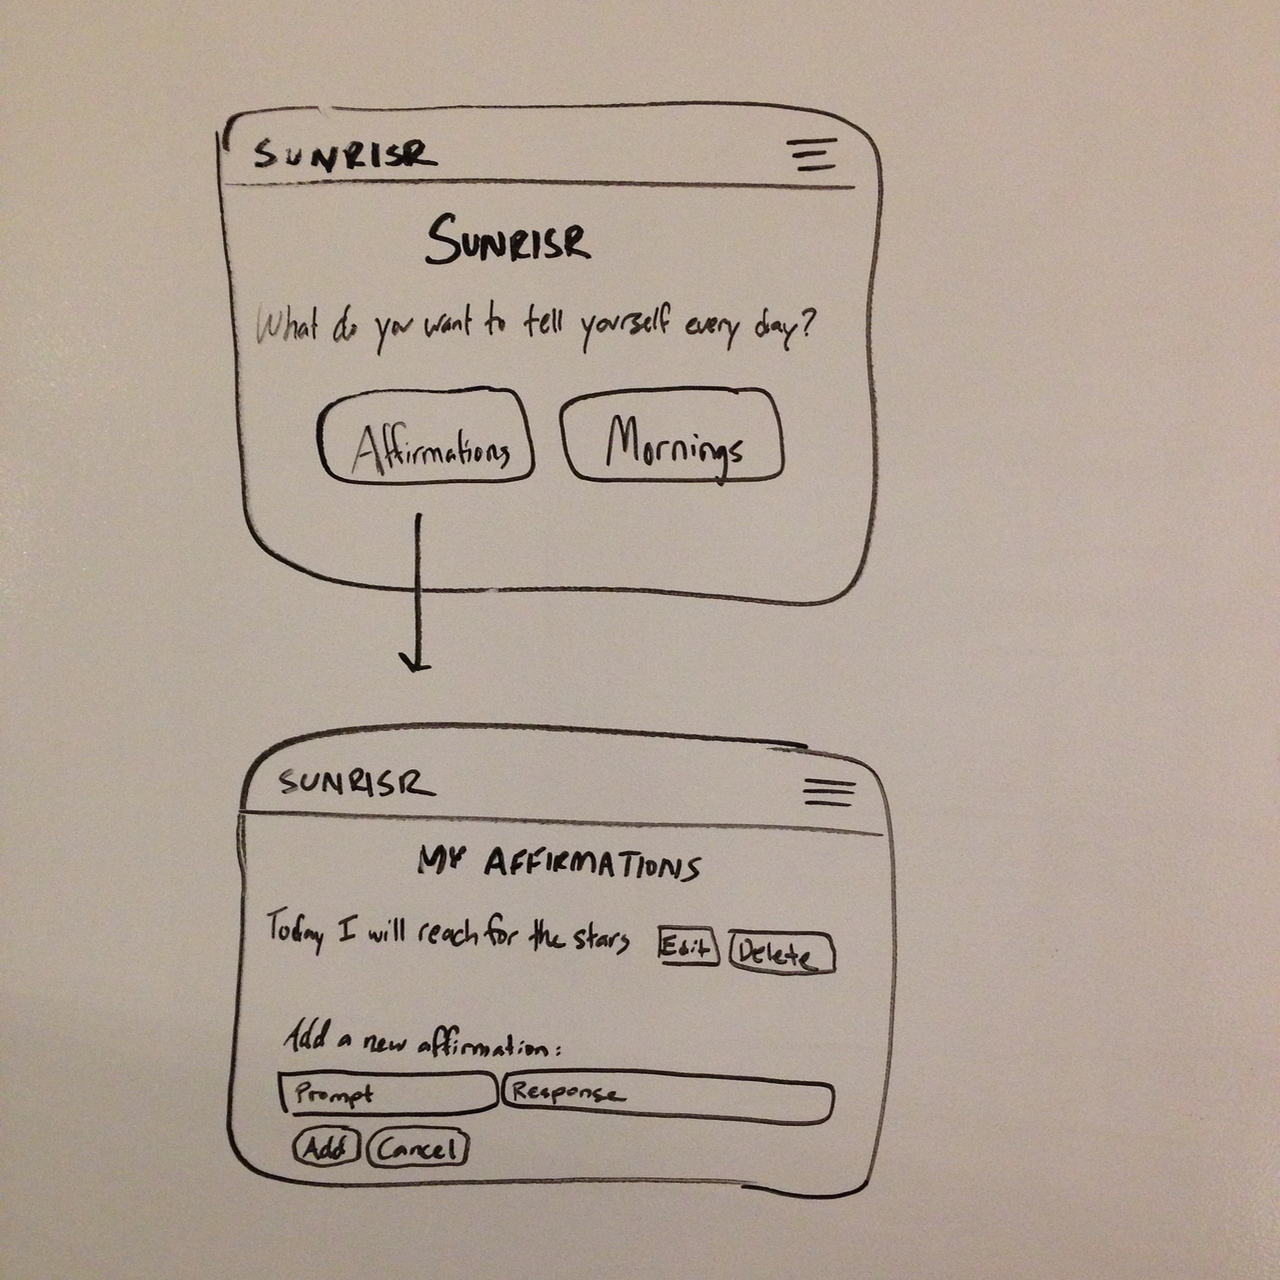 SUNRISR
SUNRISR
What do you want to tell yourself every day?
Affirmations Mornings
SUNRISR
MY AFFIRMATIONS
Today I will reach for the stars Edit Delete
Add a new affirmation:
Prompt Response
Add Cancel